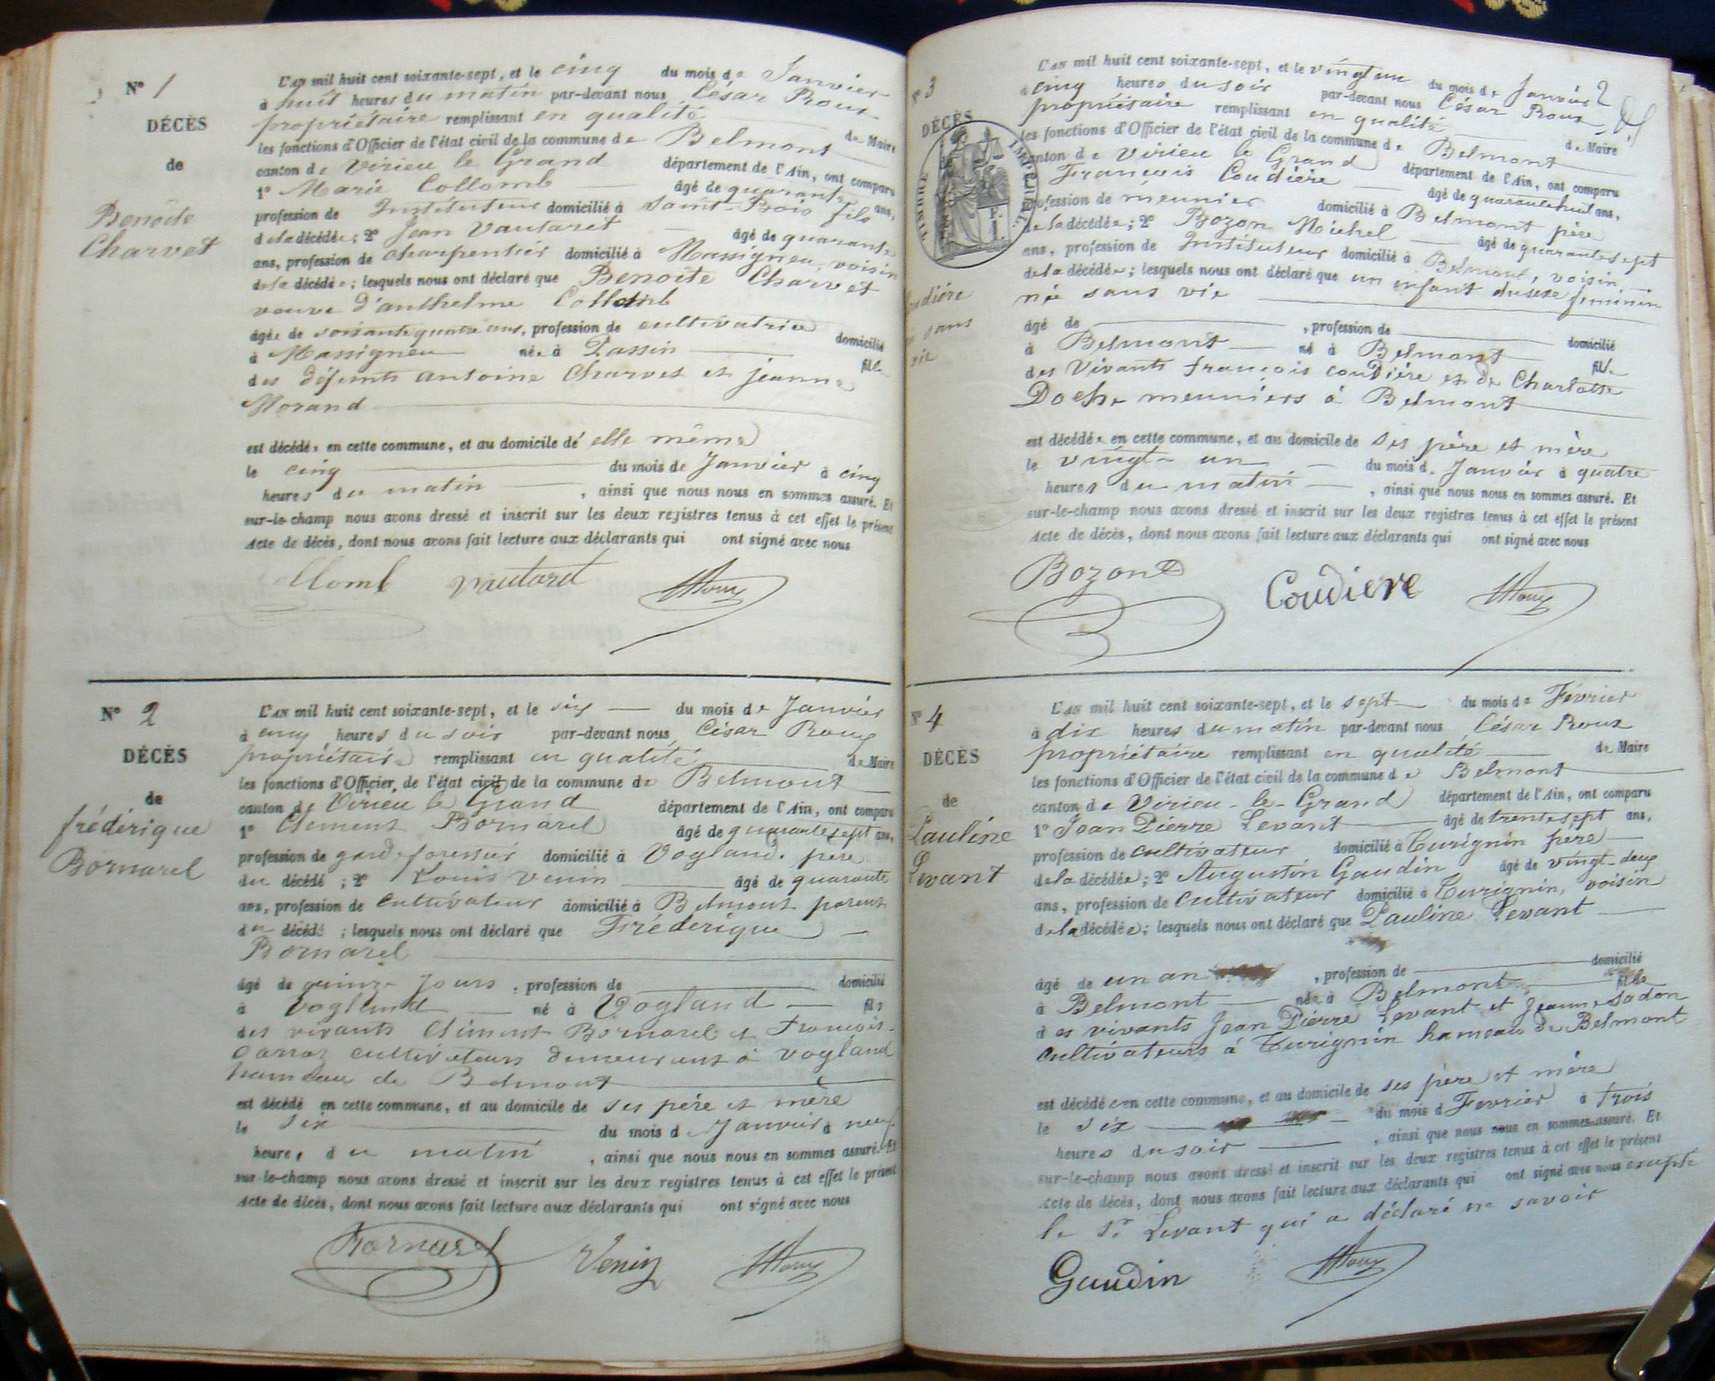 N° 1
DÉCÈS
de
Benoîte
Charvet
L'AN mil huit cent soixante-sept, et le cinq du mois de Janvier
à huit heures du matin par-devant nous César Roux
propriétaire remplissant en qualité de Maire
les fonctions d'Officier de l'état civil de la commune de Belmont
canton de Virieu le Grand département de l'Ain, ont comparu
1° Marie Collomb âgé de quarante ans,
profession de Instituteur domicilié à Saint-Bois fils
de la décédée; 2° Jean Vautaret âgé de quarante
ans, profession de charpentier domicilié à Massignieu, voisin
de la décédée; lesquels nous ont déclaré que Benoîte Charvet
veuve d'anthelme Collomb
âgée de soixante quatre ans, profession de cultivatrice domicilié
à Massignieu née à Passin fille
des défunts Antoine Charvet et jeanne
Morand
est décédée en cette commune, et au domicile de elle même
le cinq du mois de Janvier à cinq
heures du matin, ainsi que nous nous en sommes assuré. Et
sur-le-champ nous avons dressé et inscrit sur les deux registres tenus à cet effet le présent
Acte de décès, dont nous avons fait lecture aux déclarants qui ont signé avec nous
Vautaret Roux
N° 2
DÉCÈS
de
fréderique
Bornarel
L'AN mil huit cent soixante-sept, et le six du mois de Janvier
à cinq heures du soir par-devant nous César Roux
propriétaire remplissant en qualité de Maire
les fonctions d'Officier de l'état civil de la commune de Belmont
canton de Virieu le Grand département de l'Ain, ont comparu
1° Clément Bornarel âgé de quarante sept ans,
profession de garde forestier domicilié à Vogland, père
du décédé; 2° Louis Venin âgé de quarante
ans, profession de Cultivateur domicilié à Belmont parent
du décédé; lesquels nous ont déclaré que Fréderique
Bornarel
âgé de quinze jours, profession de domicilié
à Vogland né à Vogland fils
des vivants Clément Bornarel et François
Carraz cultivateurs demeurant à Vogland
hameau de Belmont
est décédé en cette commune, et au domicile de ses père et mère
le Six du mois de Janvier à neuf
heures du matin, ainsi que nous nous en sommes assuré. Et
sur-le-champ nous avons dressé et inscrit sur les deux registres tenus à cet effet le présent
Acte de décès, dont nous avons fait lecture aux déclarants qui ont signé avec nous
Bornarel Venin Roux
N° 3
DÉCÈS
TIMBRE IMPÉRIAL
L'AN mil huit cent soixante-sept, et le vingt un du mois de Janvier
à cinq heures du soir par-devant nous César Roux
propriétaire remplissant en qualité de Maire
les fonctions d'Officier de l'état civil de la commune de Belmont
canton de Virieu le Grand département de l'Ain, ont comparu
François Coudière âgé de quarante huit ans,
profession de meunier domicilié à Belmont père
de la décédée; 2° Bozon Michel âgé de quarante sept
ans, profession de Instituteur domicilié à Belmont, voisin
de la décédée; lesquels nous ont déclaré que un enfant du sexe féminin
né sans vie
âgé de, profession de domicilié
à Belmont né à Belmont fille
des Vivants françois coudière et de Charlotte
Doche meuniers à Belmont
est décédée en cette commune, et au domicile de ses père et mère
le vingt-un du mois de Janvier à quatre
heures du matin, ainsi que nous nous en sommes assuré. Et
sur-le-champ nous avons dressé et inscrit sur les deux registres tenus à cet effet le présent
Acte de décès, dont nous avons fait lecture aux déclarants qui ont signé avec nous
Bozon Coudiere Roux
N° 4
DÉCÈS
de
Pauline
Levant
L'AN mil huit cent soixante-sept, et le sept du mois de Février
à dix heures du matin par-devant nous César Roux
propriétaire remplissant en qualité de Maire
les fonctions d'Officier de l'état civil de la commune de Belmont
canton de Virieu-le-Grand département de l'Ain, ont comparu
1° Jean Pierre Levant âgé de trente sept ans,
profession de cultivateur domicilié à Turignin père
de la décédée; 2° Augustin Gaudin âgé de vingt-deux
ans, profession de Cultivateur domicilié à Turignin, voisin
de la décédée; lesquels nous ont déclaré que Pauline Levant
âgé de un an, profession de domicilié
à Belmont née à Belmont fille
des vivants Jean Pierre Levant et Jeanne Sadon
cultivateurs à Turignin hameau de Belmont
est décédée en cette commune, et au domicile de ses père et mère
le six du mois de Février à trois
heures du soir, ainsi que nous nous en sommes assuré. Et
sur-le-champ nous avons dressé et inscrit sur les deux registres tenus à cet effet le présent
Acte de décès, dont nous avons fait lecture aux déclarants qui ont signé avec nous excepté
le Sr Levant qui a déclaré ne savoir
Gaudin Roux